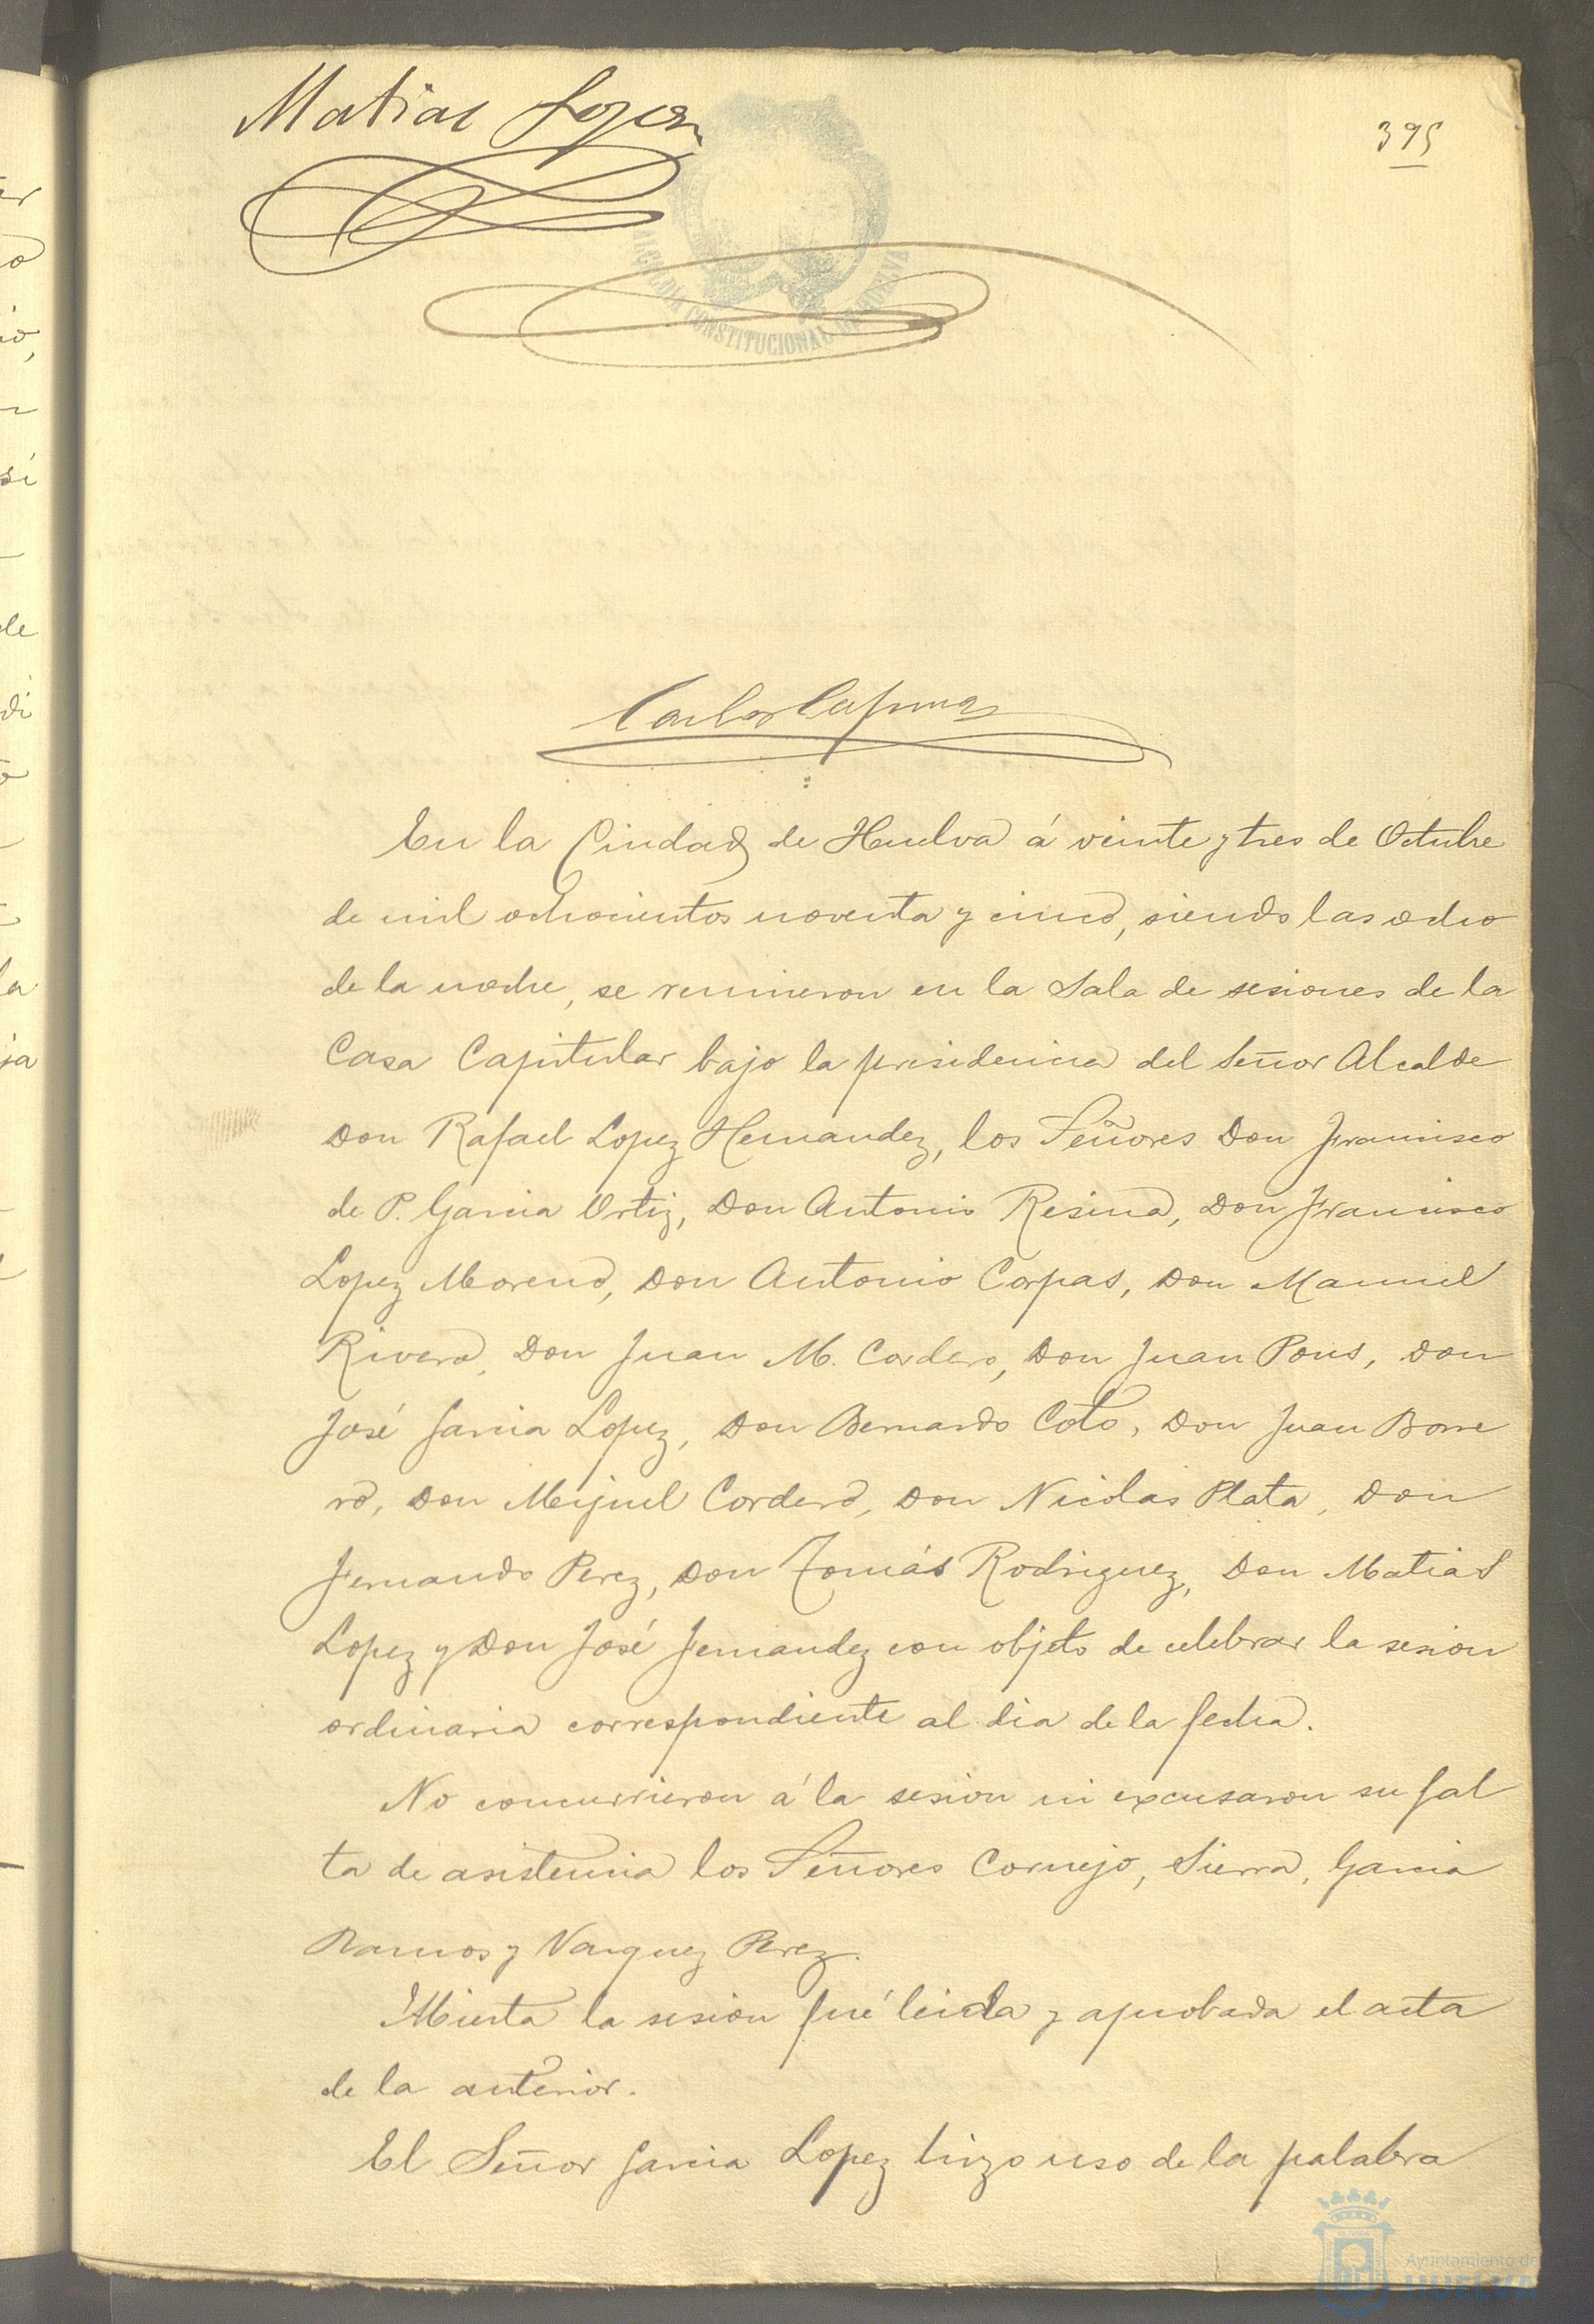 Matias Lopez
395
ALCALDIA CONSTITUCIONAL DE HUELVA
Carlos
En la Ciudad de Huelva á veinte y tres de Octubre
de mil ochocientos noventa y cinco, siendo las ocho
de la noche, se reunieron en la Sala de sesiones de la
Casa Capitular bajo la presidencia del Señor Alcalde
Don Rafael Lopez Hernandez, los Señores Don Francisco
de P. Garcia Ortiz, Don Antonio Resina, Don Francisco
Lopez Moreno, Don Antonio Corpas, Don Manuel
Rivera, Don Juan M. Cordero, Don Juan Pons, Don
José Garcia Lopez, Don Bernardo Coto, Don Juan Borre
ro, Don Miguel Cordero, Don Nicolas Plata, Don
Fernando Perez, Don Tomás Rodriguez, Don Matias
Lopez y Don José Fernandez con objeto de celebrar la sesion
ordinaria correspondiente al dia de la fecha.
No concurrieron á la sesion ni excusaron su fal
ta de asistencia los Señores Cornejo, Sierra, Garcia
Ramos y Vazquez Perez.
Abierta la sesion fué leida y aprobada el acta
de la anterior.
El Señor Garcia Lopez hizo uso de la palabra
Ayuntamiento de
HUELVA